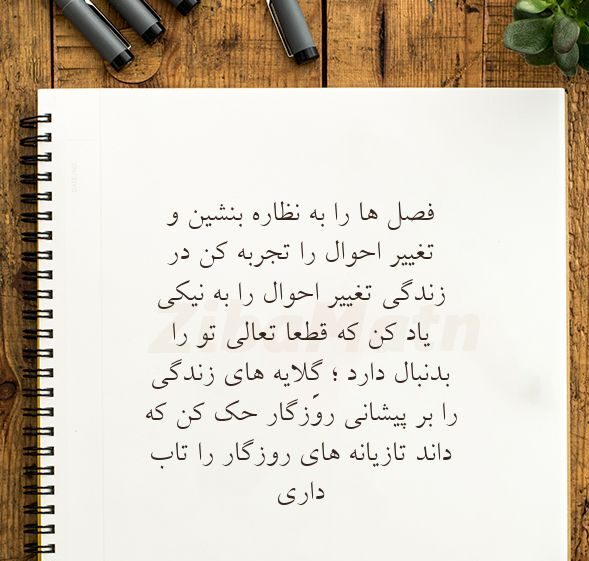 فصل ها را به نظاره بنشین و
تغییر احوال را تجربه کن در
زندگی تغییر احوال را به نیکی
یاد کن که قطعا تعالی تو را
بدنبال دارد ؛ گلایه های زندگی
را بر پیشانی روزگار حک کن که
داند تازیانه های روزگار را تاب
داری
ZibaMatn